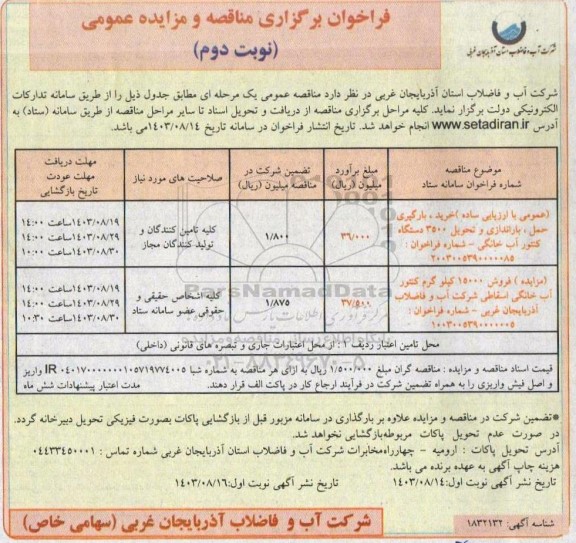 فراخوان برگزاری مناقصه و مزایده عمومی
(نوبت دوم)
شرکت آب و فاضلاب استان آذربایجان غربی
شرکت آب و فاضلاب استان آذربایجان غربی در نظر دارد مناقصه عمومی یک مرحله ای مطابق جدول ذیل را از طریق سامانه تدارکات
الکترونیکی دولت برگزار نماید. کلیه مراحل برگزاری مناقصه از دریافت و تحویل اسناد تا سایر مراحل مناقصه از طریق سامانه (ستاد) به
آدرس www.setadiran.ir انجام خواهد شد. تاریخ انتشار فراخوان در سامانه تاریخ ۱۴۰۳/۰۸/۱۴می باشد.
موضوع مناقصه
شماره فراخوان سامانه ستاد
مبلغ برآورد
میلیون (ریال)
تضمین شرکت در
مناقصه میلیون (ریال)
صلاحیت های مورد نیاز
مهلت دریافت
مهلت عودت
تاریخ بازگشایی
(عمومی با ارزیابی ساده )خرید ، بارگیری
حمل ، باراندازی و تحویل ۳۵۰۰ دستگاه
کنتور آب خانگی - شماره فراخوان :
۲۰۰۳۰۰۵۳۹۰۰۰۰۰۸۵
۳۶/۰۰۰
۱/۸۰۰
کلیه تامین کنندگان و
تولید کنندگان مجاز
۱۴۰۳/۰۸/۱۹ساعت ۱۴:۰۰
۱۴۰۳/۰۸/۲۹ساعت ۱۴:۰۰
۱۴۰۳/۰۸/۳۰ساعت ۱۰:۰۰
(مزایده ) فروش ۱۵۰۰۰ کیلو گرم کنتور
آب خانگی اسقاطی شرکت آب و فاضلاب
آذربایجان غربی - شماره فراخوان :
۳۷/۵۰۰
۱/۸۷۵
کلیه اشخاص حقیقی و
حقوقی عضو سامانه ستاد
۱۴۰۳/۰۸/۱۹ساعت ۱۴:۰۰
۱۴۰۳/۰۸/۲۹ساعت ۱۴:۰۰
۱۴۰۳/۰۸/۳۰ساعت ۱۰:۳۰
ParsNamadData
۰۲۱-۸۸۳۴۹۶۷۰-۵
محل تامین اعتبار ردیف ۱: از محل اعتبارات جاری و تبصره های قانونی (داخلی)
قیمت اسناد مناقصه و مزایده : مناقصه گران مبلغ ۱/۵۰۰/۰۰۰ ریال به ازای هر مناقصه به شماره شبا IR واریز
و اصل فیش واریزی را به همراه تضمین شرکت در فرآیند ارجاع کار در پاکت الف قرار دهند. مدت اعتبار پیشنهادات شش ماه
●تضمین شرکت در مناقصه و مزایده علاوه بر بارگذاری در سامانه مزبور قبل از بازگشایی پاکات بصورت فیزیکی تحویل دبیرخانه گردد.
در صورت عدم تحویل پاکات مربوطه‌بازگشایی نخواهد شد.
آدرس تحویل پاکات : ارومیه - چهارراه‌مخابرات شرکت آب و فاضلاب استان آذربایجان غربی شماره تماس : ۰۴۴۳۳۴۵۰۰۰۱
هزینه چاپ آگهی به عهده برنده می باشد.
تاریخ نشر آگهی نوبت اول:۱۴۰۳/۰۸/۱۴ تاریخ نشر آگهی نوبت اول:۱۴۰۳/۰۸/۱۶
شناسه آگهی: ۱۸۳۲۱۳۲
شرکت آب و فاضلاب آذربایجان غربی (سهامی خاص)